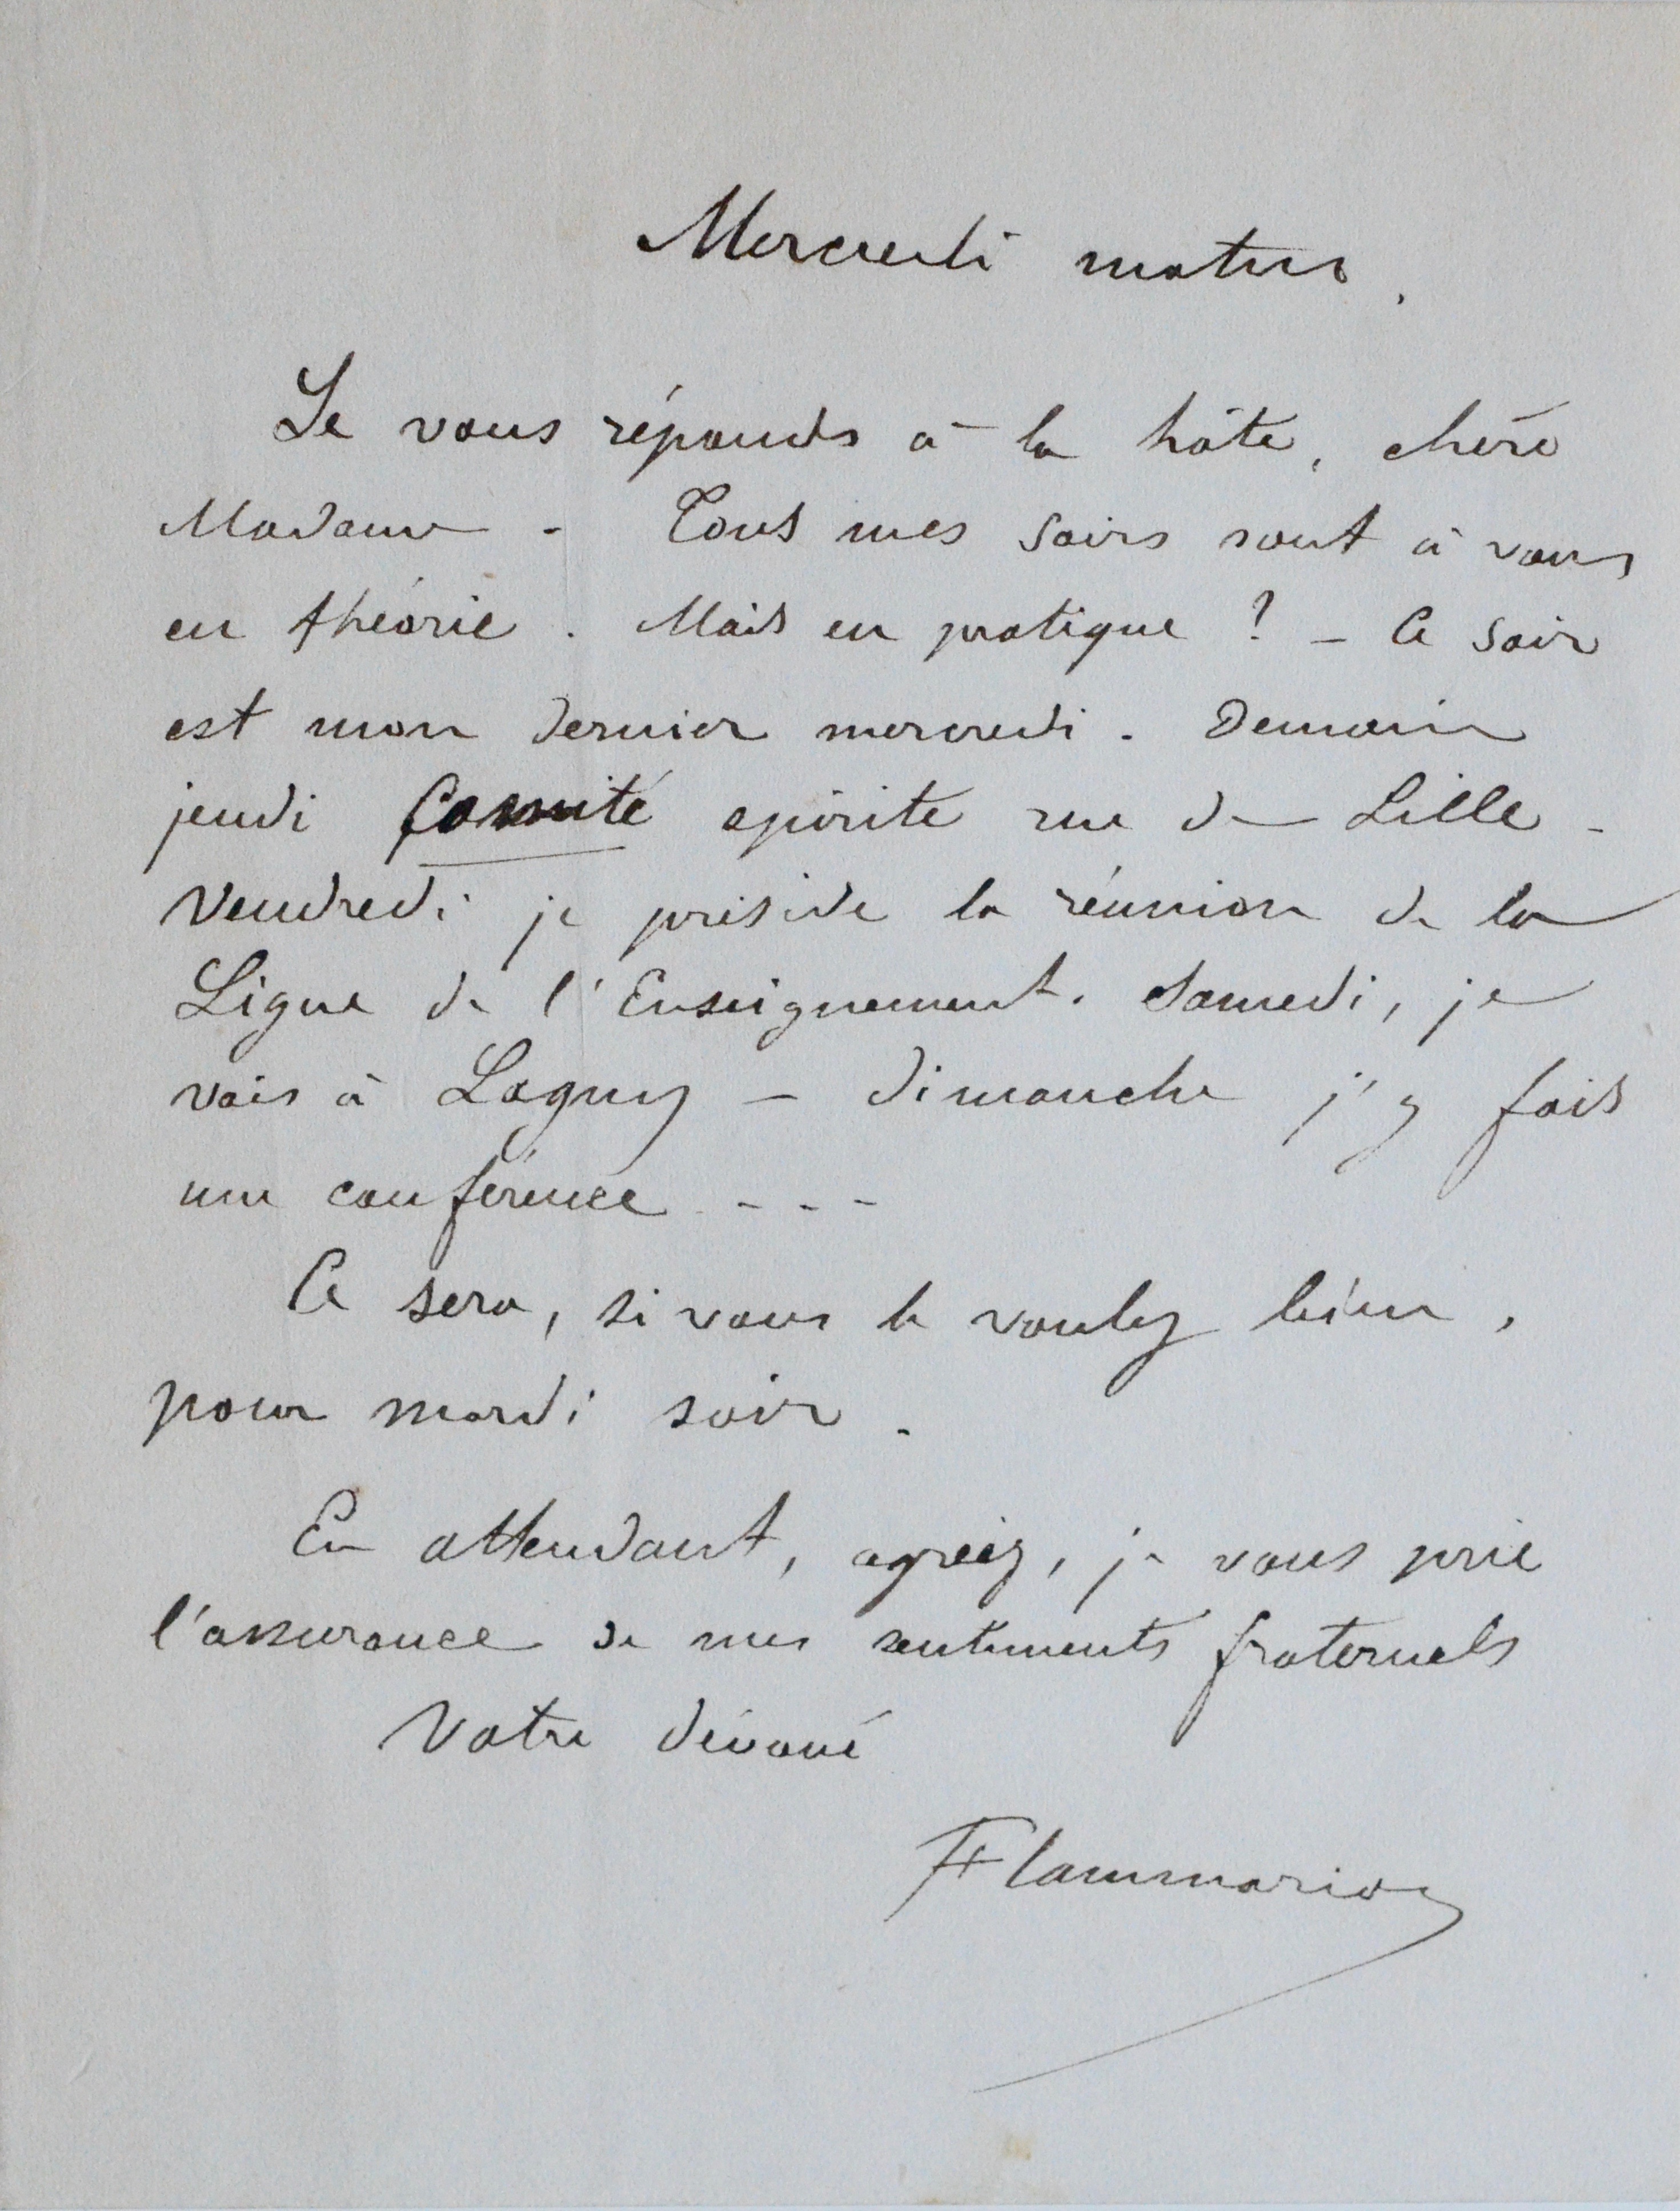 Mercredi matin.
Je vous réponds à la hâte, chère
Madame - Tous mes soirs sont à vous
en théorie. Mais en pratique ? - Ce soir
est mon dernier mercredi. Demain
jeudi Comité spirite rue de Lille -
Vendredi je préside la réunion de la
Ligue de l'Enseignement. Samedi, je
vais à Lagny - dimanche j'y fais
une conférence - - -
Ce sera, si vous le voulez bien,
pour mardi soir.
En attendant, agréez, je vous prie
l'assurance de mes sentiments fraternels
Votre dévoué
Flammarion